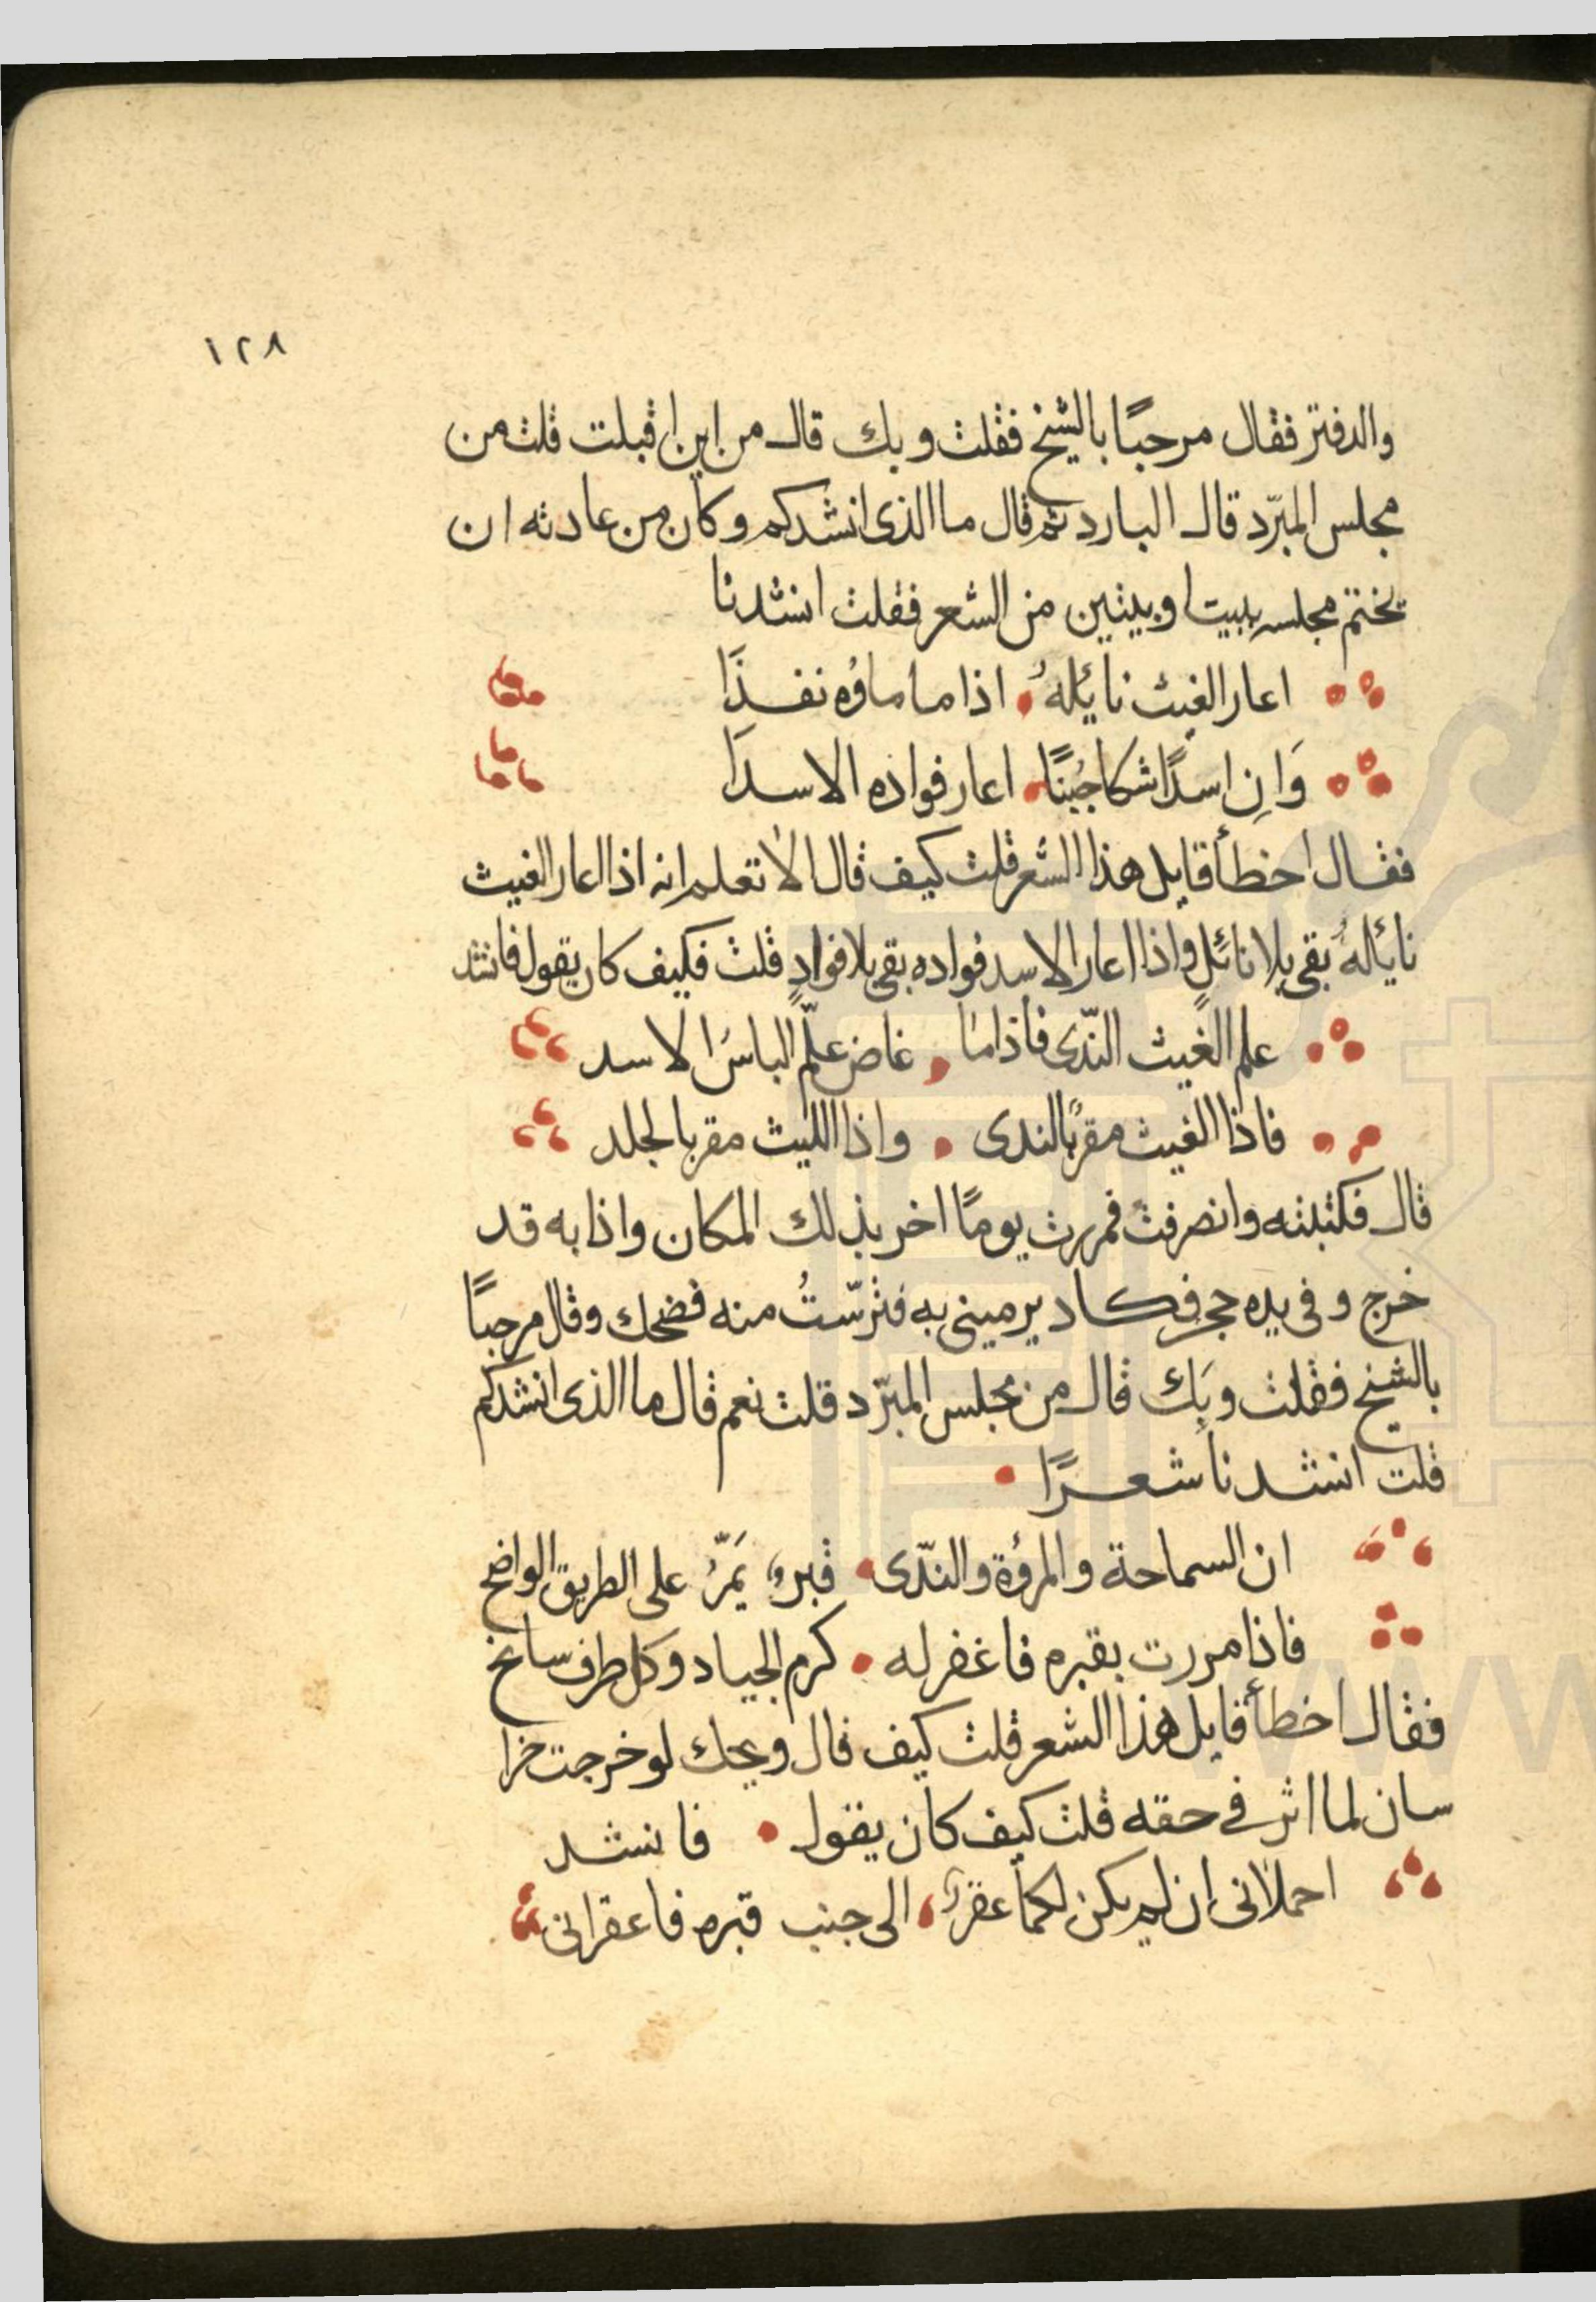 ١٢٨
والدفتر فقال مرحبًا بالشيخ فقلت وبك قال من اين اقبلت قلت من
مجلس المبرّد قال البارد ثم قال ما الذى انشدكم وكان من عادته ان
يختتم مجلسه ببيت او بيتين من الشعر فقلت انشدنا
اعار الغيث نائلهُ اذا ما ماؤه نفدَا
وَاِن اسدًا شكا جُبنًا اعار فواده الاسدَا
فقال اخطأ قايل هذا الشعر قلت كيف قال الا تعلم انه اذا اعار الغيث
نائلهُ بقى بلا نائلٍ واذا اعار الاسد فواده بقى بلا فوادٍ قلت فكيف كان يقول فانشد
علم الغيث النّدى فاذا ما غاض علّم الباسَ الاسد
فاذا الغيث مقرٌ بالندى واذا الليث مقر بالجلد
قال فكتبته وانصرفت فمررت يومًا اخر بذلك المكان واذا به قد
خرج وفى يده حجر فكاد يرمينى به فترّستُ منه فضحك وقال مرحبًا
بالشيخ فقلت وبَك قال من مجلس المبرّد قلت نعم قال ما الذى انشدكم
قلت انشدنا شعرًا
ان السماحة والمرؤة والندّى قبرٌ يَمَرُّ على الطريق الواضح
فاذا مررت بقبره فاغفر له كرم الجياد وكل طرف سابح
فقال اخطأ قايل هذا الشعر قلت كيف قال ويحك لو خرجت خرا
سان لما اثر فى حقه قلت كيف كان يقول فانشد
احملانى ان لم يكن لكما عقرٌ الى جنب قبره فاعقرانى